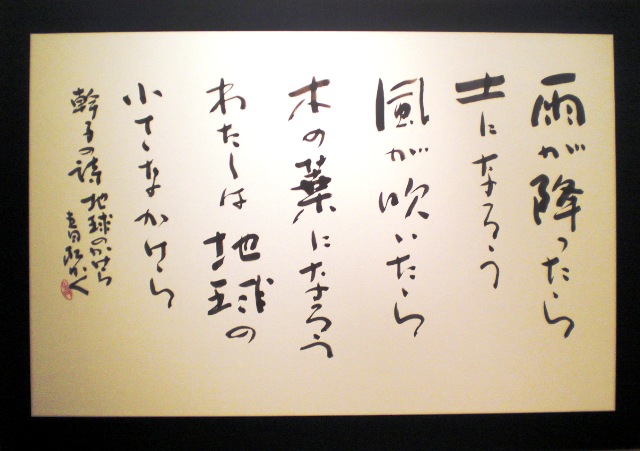 雨が降ったら
土になろう
風が吹いたら
木の葉になろう
わたしは地球の
小さなかけら
幹子の詩 地球のかけら
かく